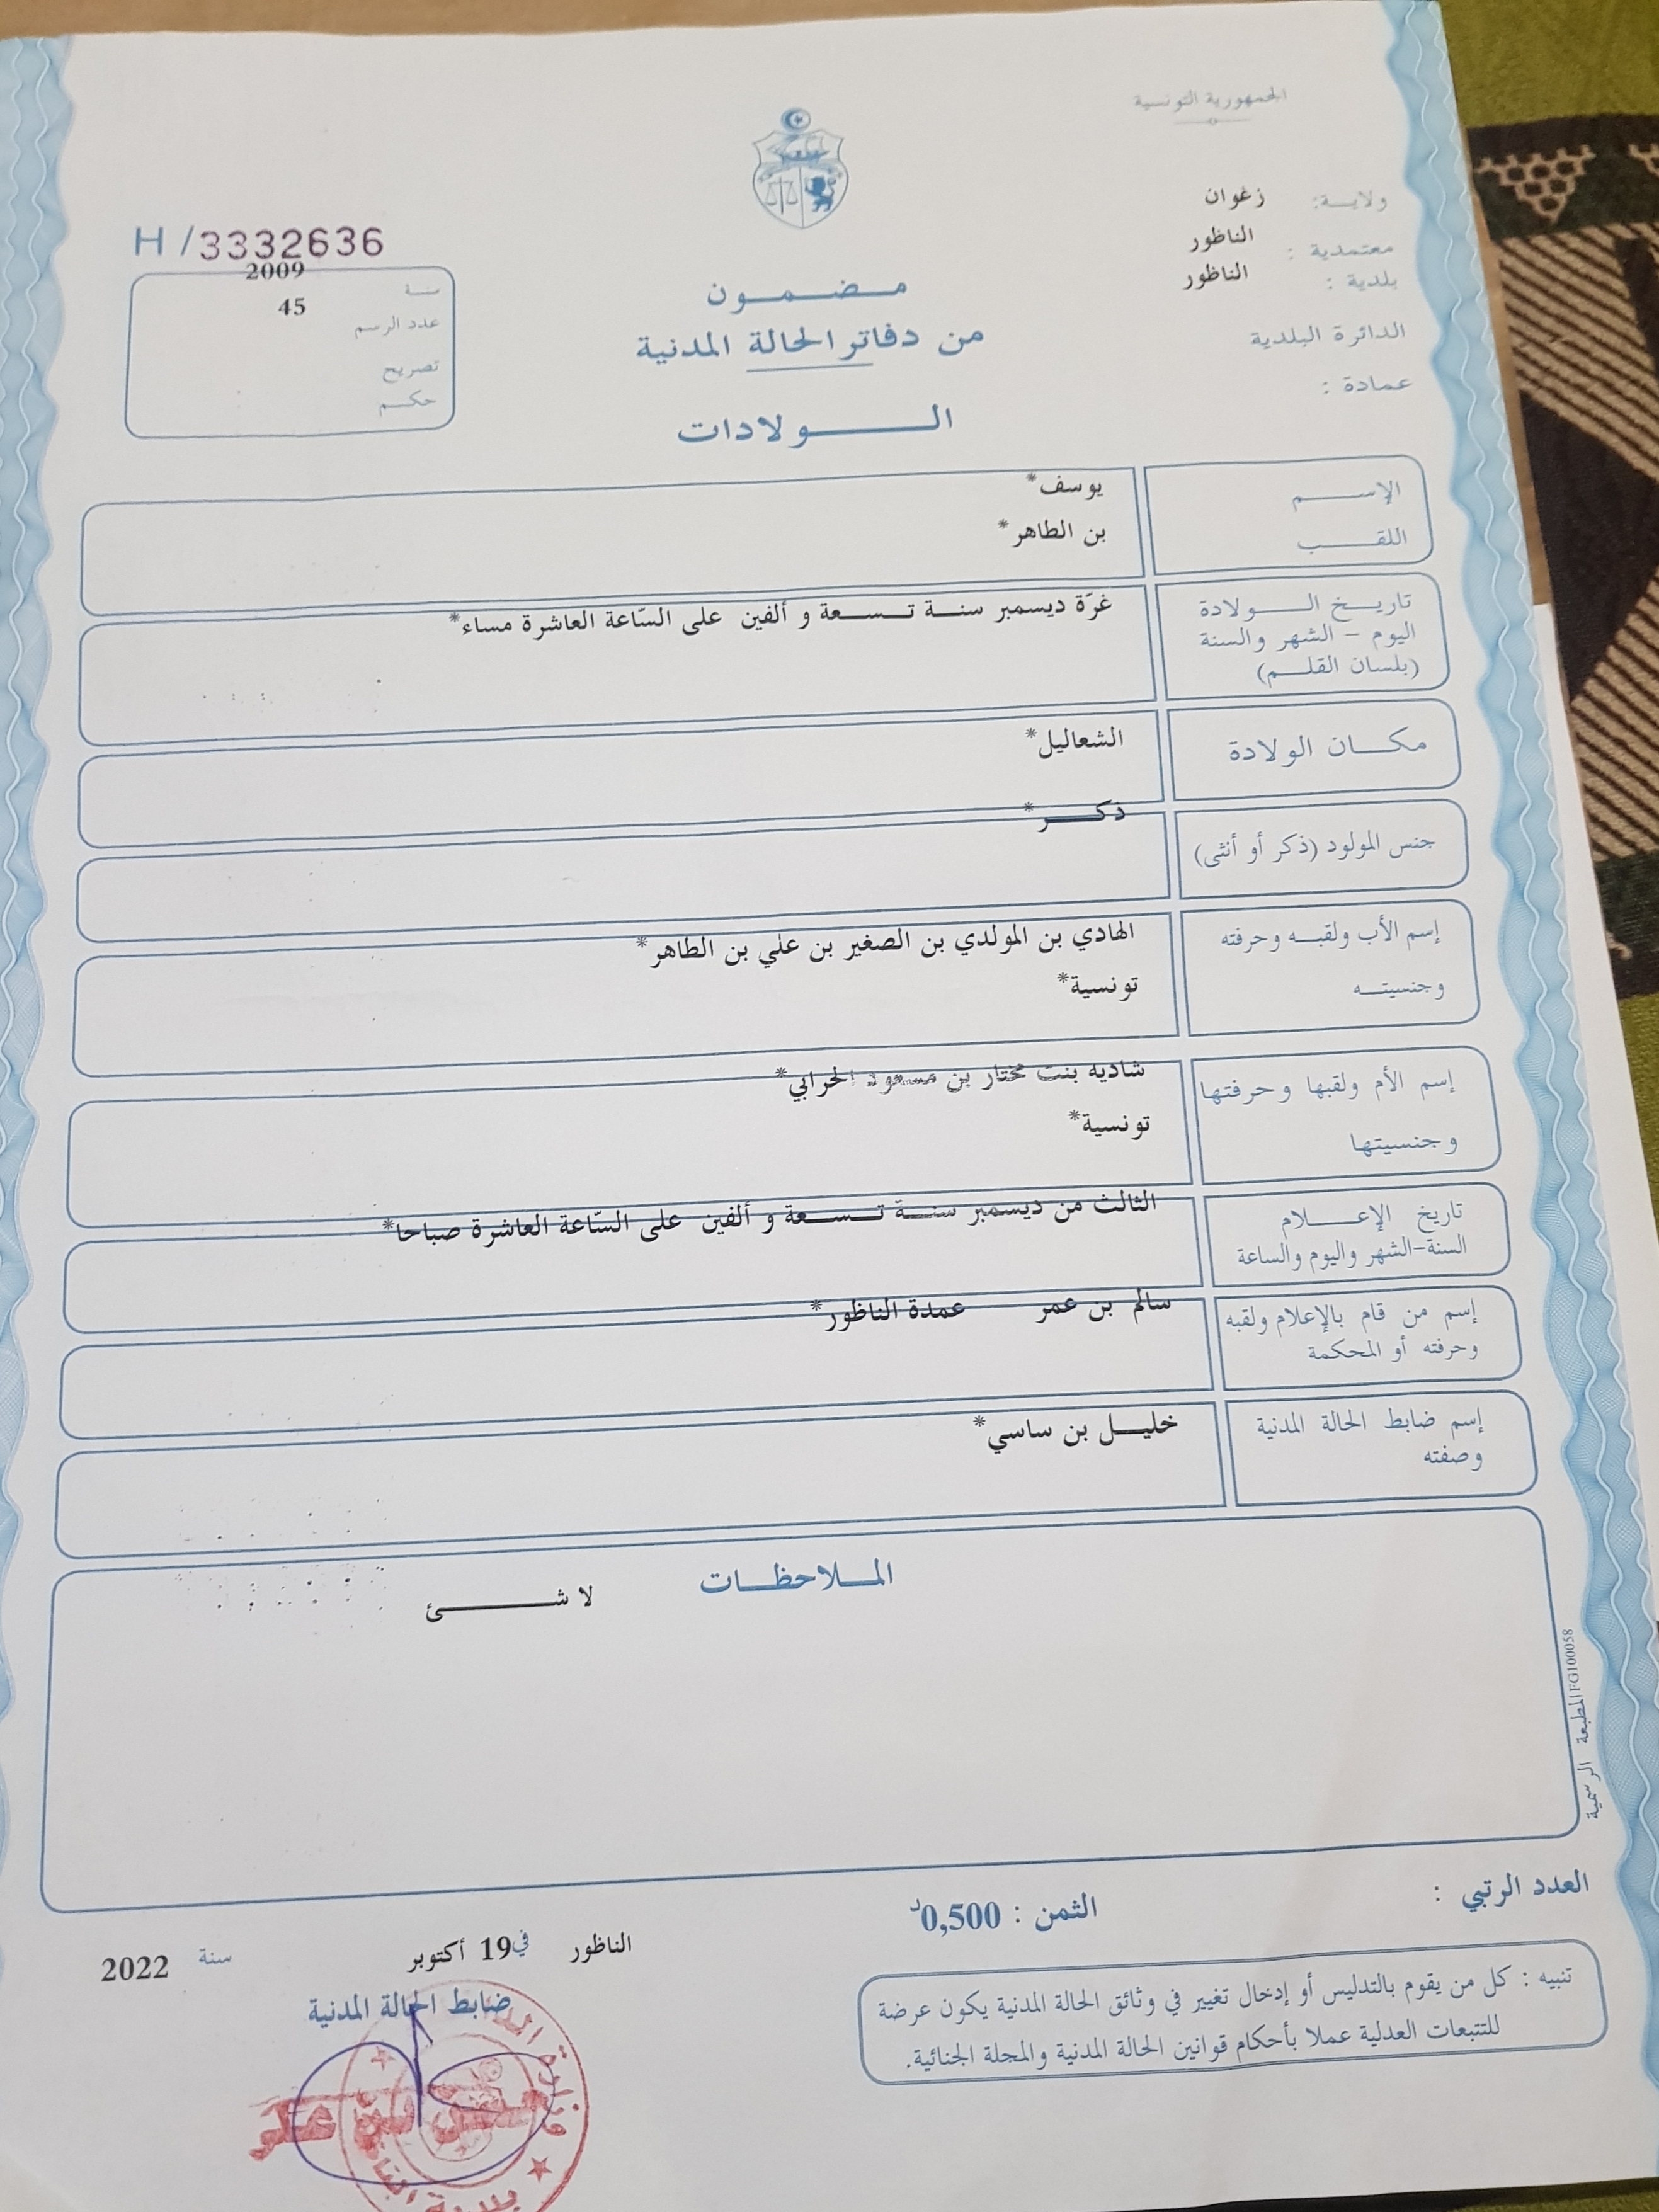 الجمهورية التونسية
ولاية: زغوان
معتمدية : الناظور
بلدية : الناظور
الدائرة البلدية
عمادة :
H /3332636
سنة 2009
عدد الرسم 45
تصريح
حكم
مضمون
من دفاتر الحالة المدنية
الولادات
الإسم يوسف*
اللقب بن الطاهر*
تاريخ الولادة
اليوم - الشهر والسنة
(بلسان القلم)
غرّة ديسمبر سنة تسعة و ألفين على السّاعة العاشرة مساء*
مكان الولادة الشعاليل*
جنس المولود (ذكر أو أنثى) ذكر*
إسم الأب ولقبه وحرفته الهادي بن المولدي بن الصغير بن علي بن الطاهر*
وجنسيته تونسية*
إسم الأم ولقبها وحرفتها شاذية بنت مختار بن مسعود الحرابي*
وجنسيتها تونسية*
تاريخ الإعلام
السنة-الشهر واليوم والساعة
الثالث من ديسمبر سنة تسعة و ألفين على السّاعة العاشرة صباحا*
إسم من قام بالإعلام ولقبه
وحرفته أو المحكمة
سالم بن عمر عمدة الناظور*
إسم ضابط الحالة المدنية
وصفته
خليل بن ساسي*
الملاحظات
لا شئ
المطبعة الرسمية FG100058
العدد الرتبي :
الثمن : 0,500د
الناظور في 19 أكتوبر سنة 2022
ضابط الحالة المدنية
تنبيه : كل من يقوم بالتدليس أو إدخال تغيير في وثائق الحالة المدنية يكون عرضة
للتتبعات العدلية عملا بأحكام قوانين الحالة المدنية والمجلة الجنائية.